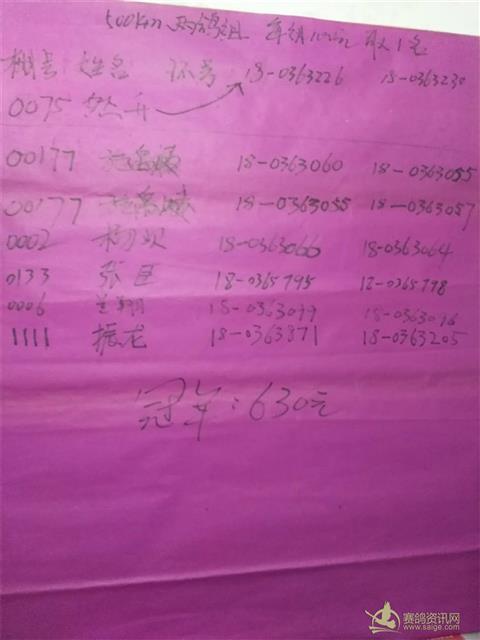 500Km 两鸽组 每组100元 取1名
棚号 姓名 环号 18-0363226 18-0363230
0075
00177 18-0363060 18-0363055
00177 18-0363055 18-0363057
0002 18-0363066 18-0363064
0133 张臣 18-0365795 12-0365798
0006 兰翔 18-0363099 18-0363096
1111 振龙 18-0363871 18-0363205
冠军:630元
赛鸽资讯网
www.saige.com